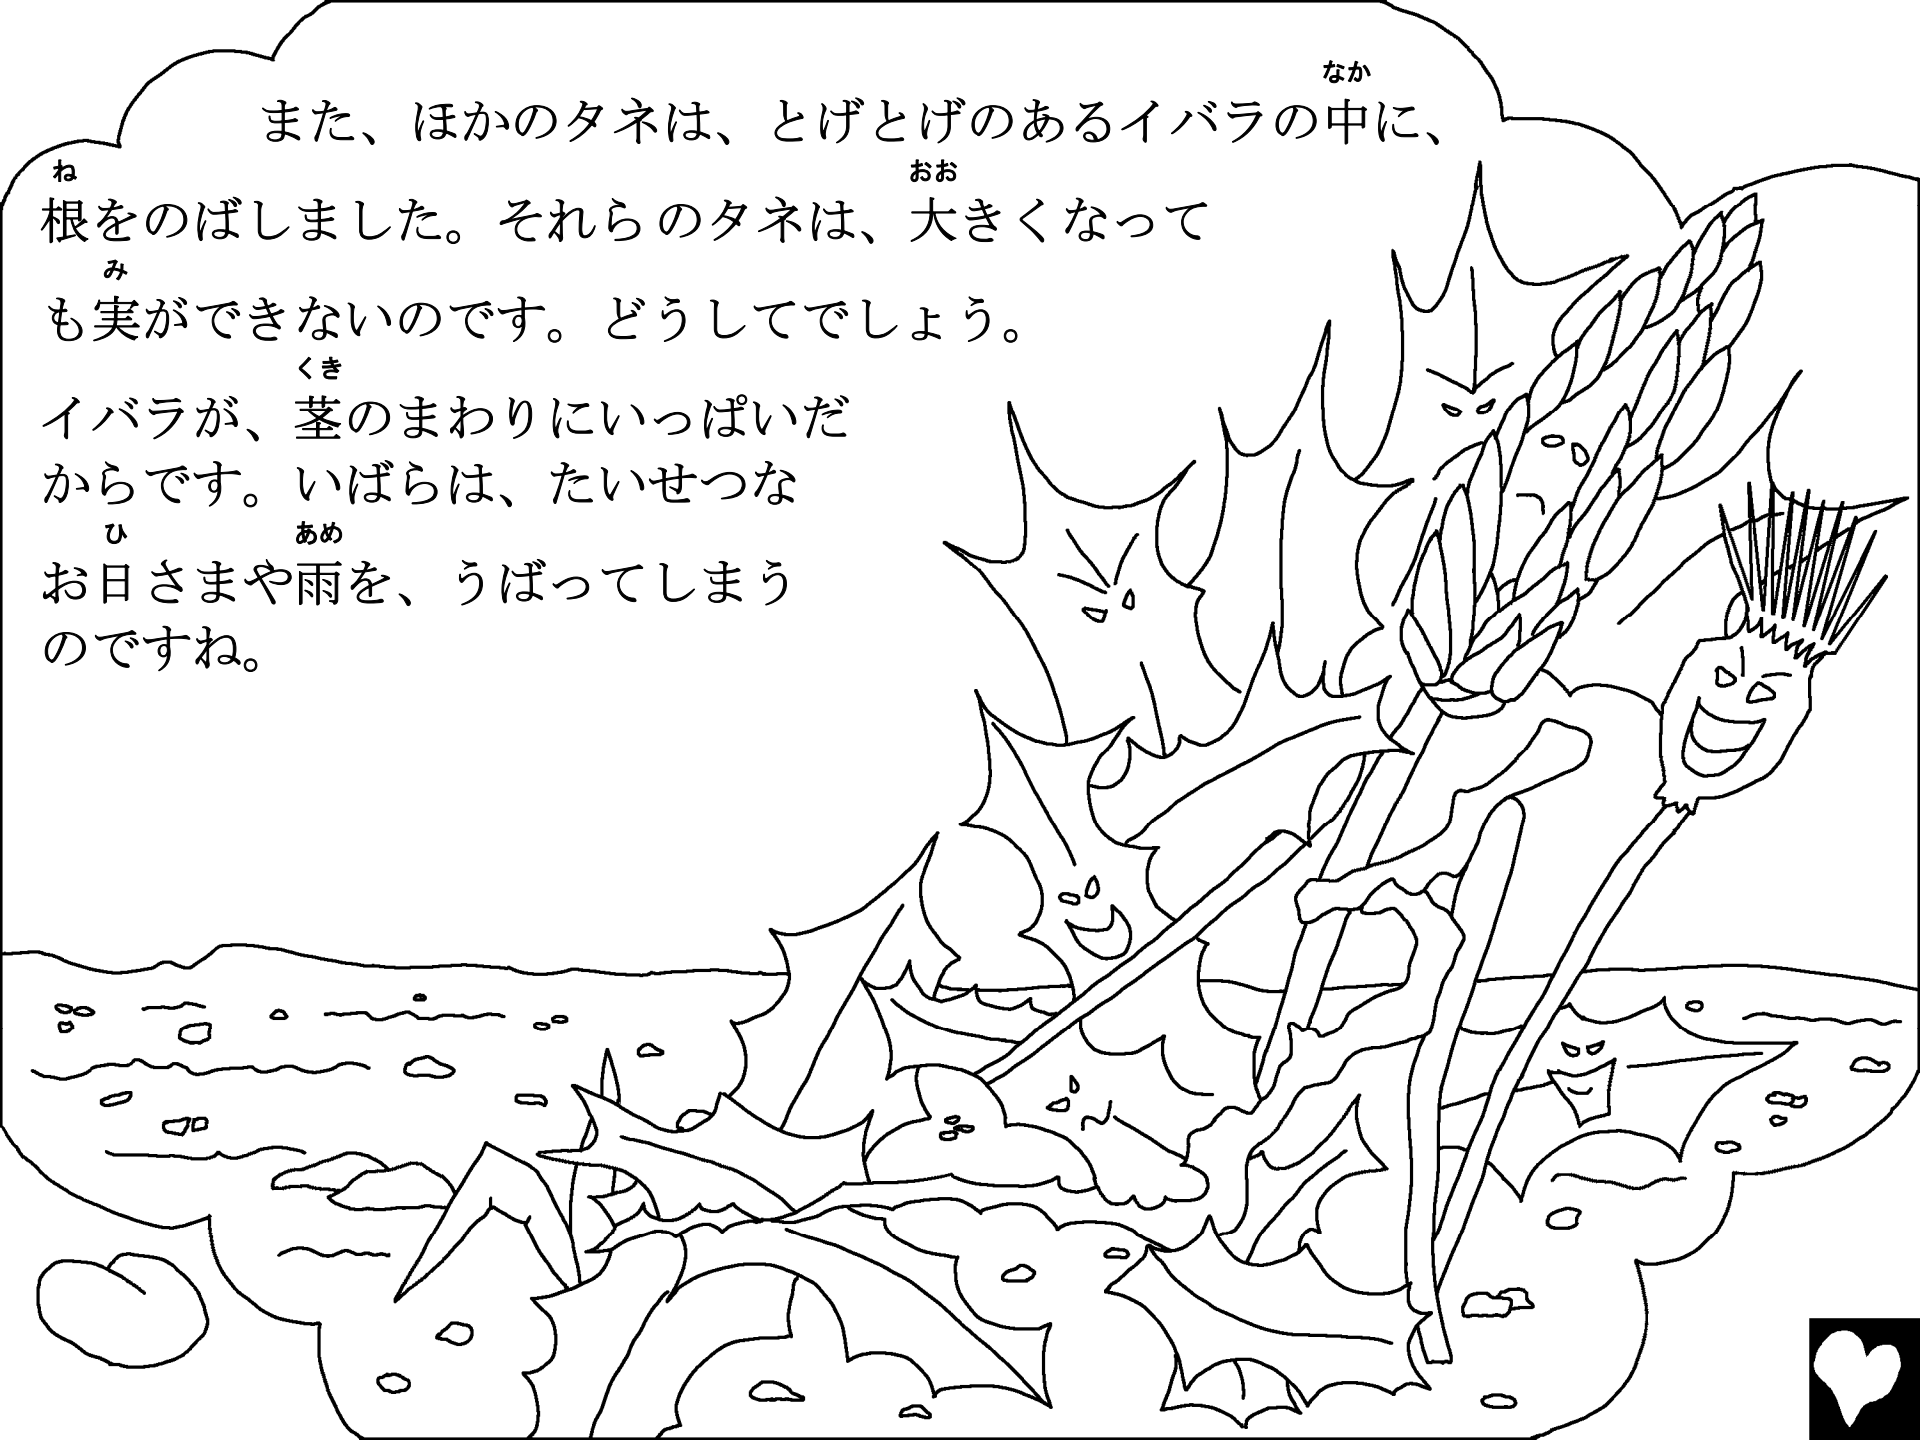 また、ほかのタネは、とげとげのあるイバラの中に、
根をのばしました。それらのタネは、大きくなって
も実ができないのです。どうしてでしょう。
イバラが、茎のまわりにいっぱいだ
からです。いばらは、たいせつな
お日さまや雨を、うばってしまう
のですね。
なか
ね
おお
み
くき
ひ
あめ